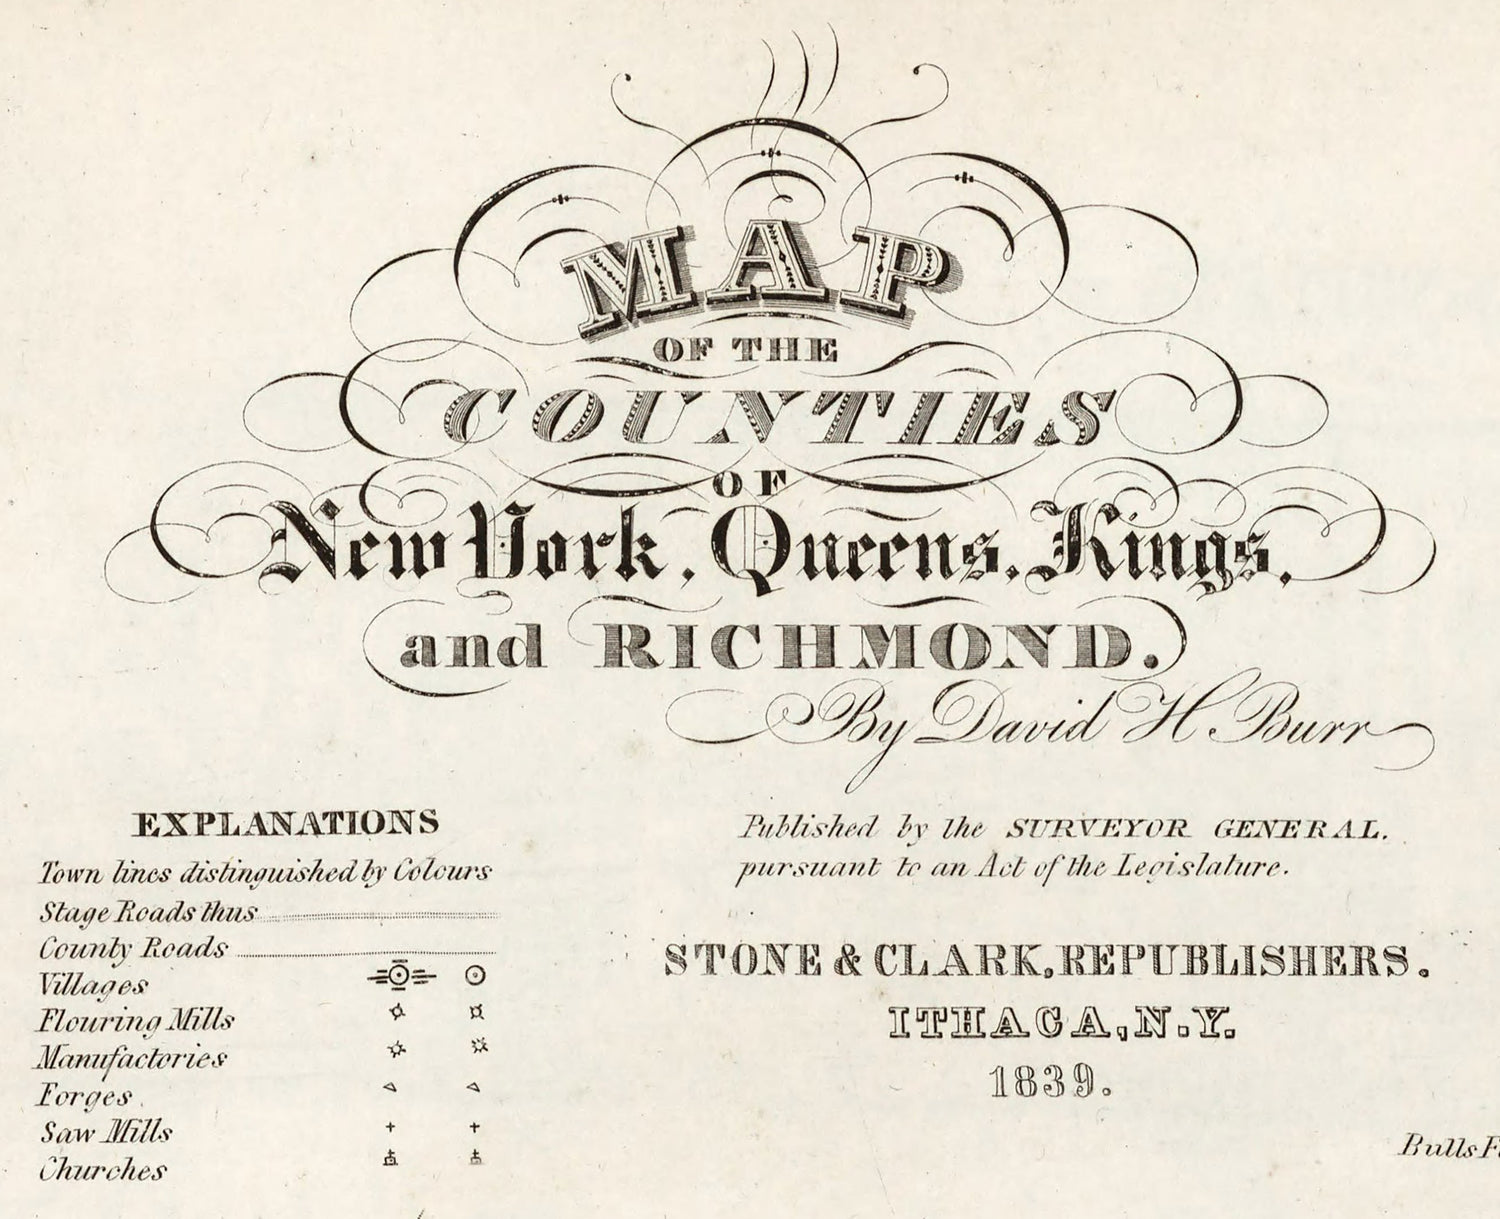 MAP
OF THE
COUNTIES
OF
New York, Queens, Kings,
and RICHMOND.
By David H. Burr
EXPLANATIONS
Town lines distinguished by Colours
Stage Roads thus
County Roads
Villages
Flouring Mills
Manufactories
Forges
Saw Mills
Churches
Published by the SURVEYOR GENERAL.
pursuant to an Act of the Legislature.
STONE & CLARK, REPUBLISHERS.
ITHACA, N.Y.
1839.
Bulls